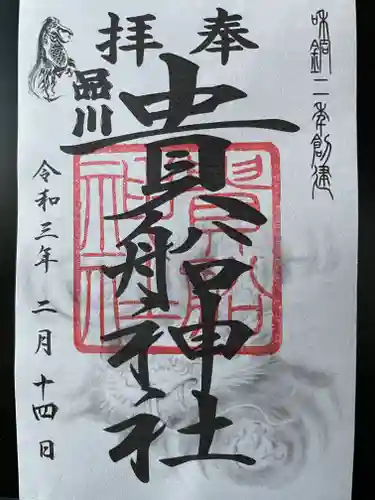 和銅二年創建
奉拝
品川
貴船神社
貴船神社
令和三年 二月 十四日